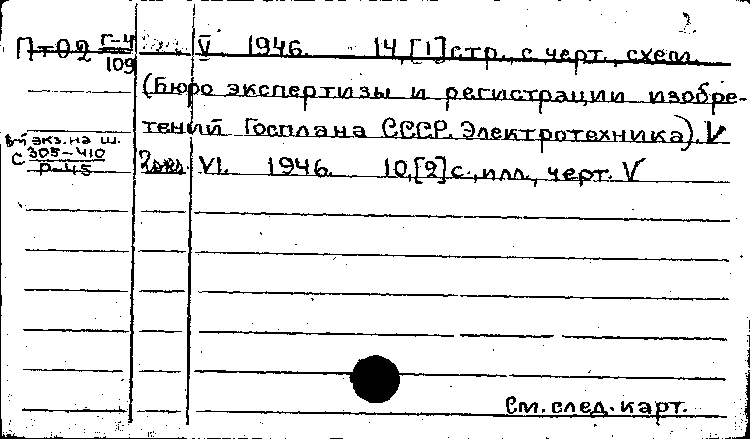 2
П-02 Г-4/109 V 1946. 14,[1]стр., с черт., схем.
(Бюро экспертизы и регистрации изобре-
тений Госплана СССР. Электротехника). V
экз. на ш.
С 305-410
Р-45
2экз. VI. 1946. 10,[2]с., илл., черт. V
См. след. карт.